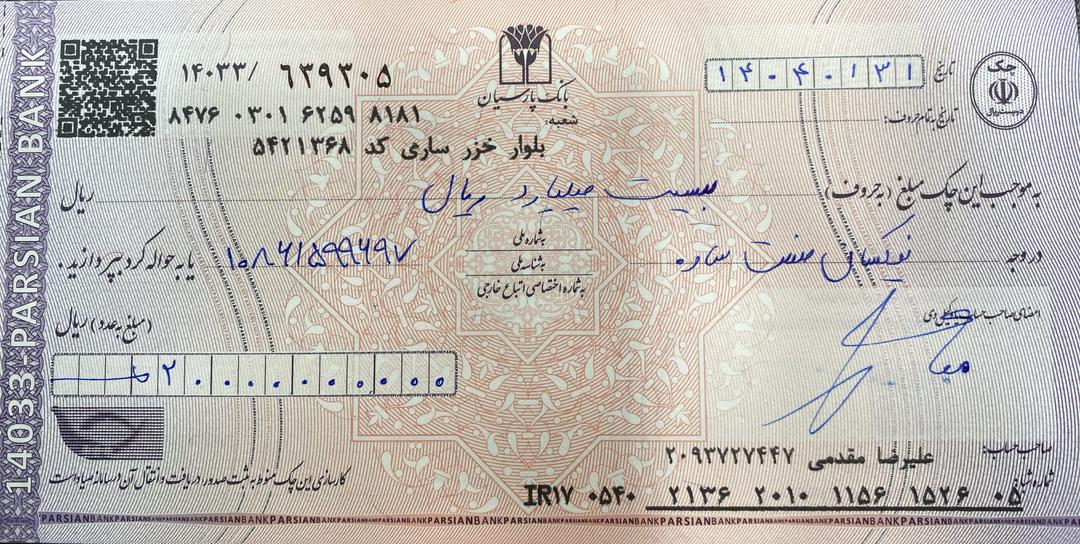 چک
تاریخ ۱۴۰۴۰۱۳۱
۱۴۰۳۳/ ۶۳۹۳۰۵
بانک پارسیان
تاریخ به تمام حروف:
شعبه:
۸۴۷۶ ۰۳۰۱ ۶۲۵۹ ۸۱۸۱
بلوار خزر ساری کد ۵۴۲۱۳۶۸
به موجب این چک مبلغ (به حروف) بیست میلیارد ریال ریال
در وجه نوکسال صنعت ساره
به شماره ملی
به شناسه ملی
به شماره اختصاصی اتباع خارجی
۱۰۸۶۱۵۹۹۶۹۷ یا به حواله کرد بپردازید.
(مبلغ به عدد) ریال
۲۰۰۰۰۰۰۰۰۰۰
امضای صاحب حساب
صاحب حساب: علیرضا مقدمی ۲۰۹۳۷۲۷۴۴۷
شماره شبا: IR۱۷ ۰۵۴۰ ۲۱۳۶ ۲۰۱۰ ۱۱۵۶ ۱۵۲۶ ۰۵
کارسازی این چک منوط به ثبت صدور، دریافت و انتقال آن در سامانه صیاد است
14033 PARSIAN BANK
PARSIANBANKPARSIANBANKPARSIANBANKPARSIANBANK